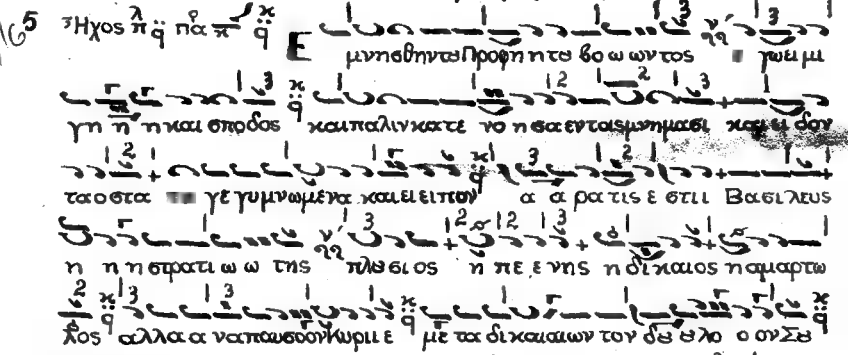 165 Ἦχος λ π q πα κ q
Ε μνησθην τȣ Προφη ητȣ βο ω ωντος γω ει μι
γη η η και σποδος και παλιν κατε νο η σα εν τοις μνημασι και ει δον
τα οστα γε γυμνωμενα και ει ειπον α α ρα τις ε στιι Βασιλευς
η η η στρατι ω ω της πλȣσιος η πε ε νης η δικαιος η αμαρτω
λος αλλα α ναπαυσοον Κυριιε με τα δικαιαιων τον δȣ ȣλο ο ον Σȣ